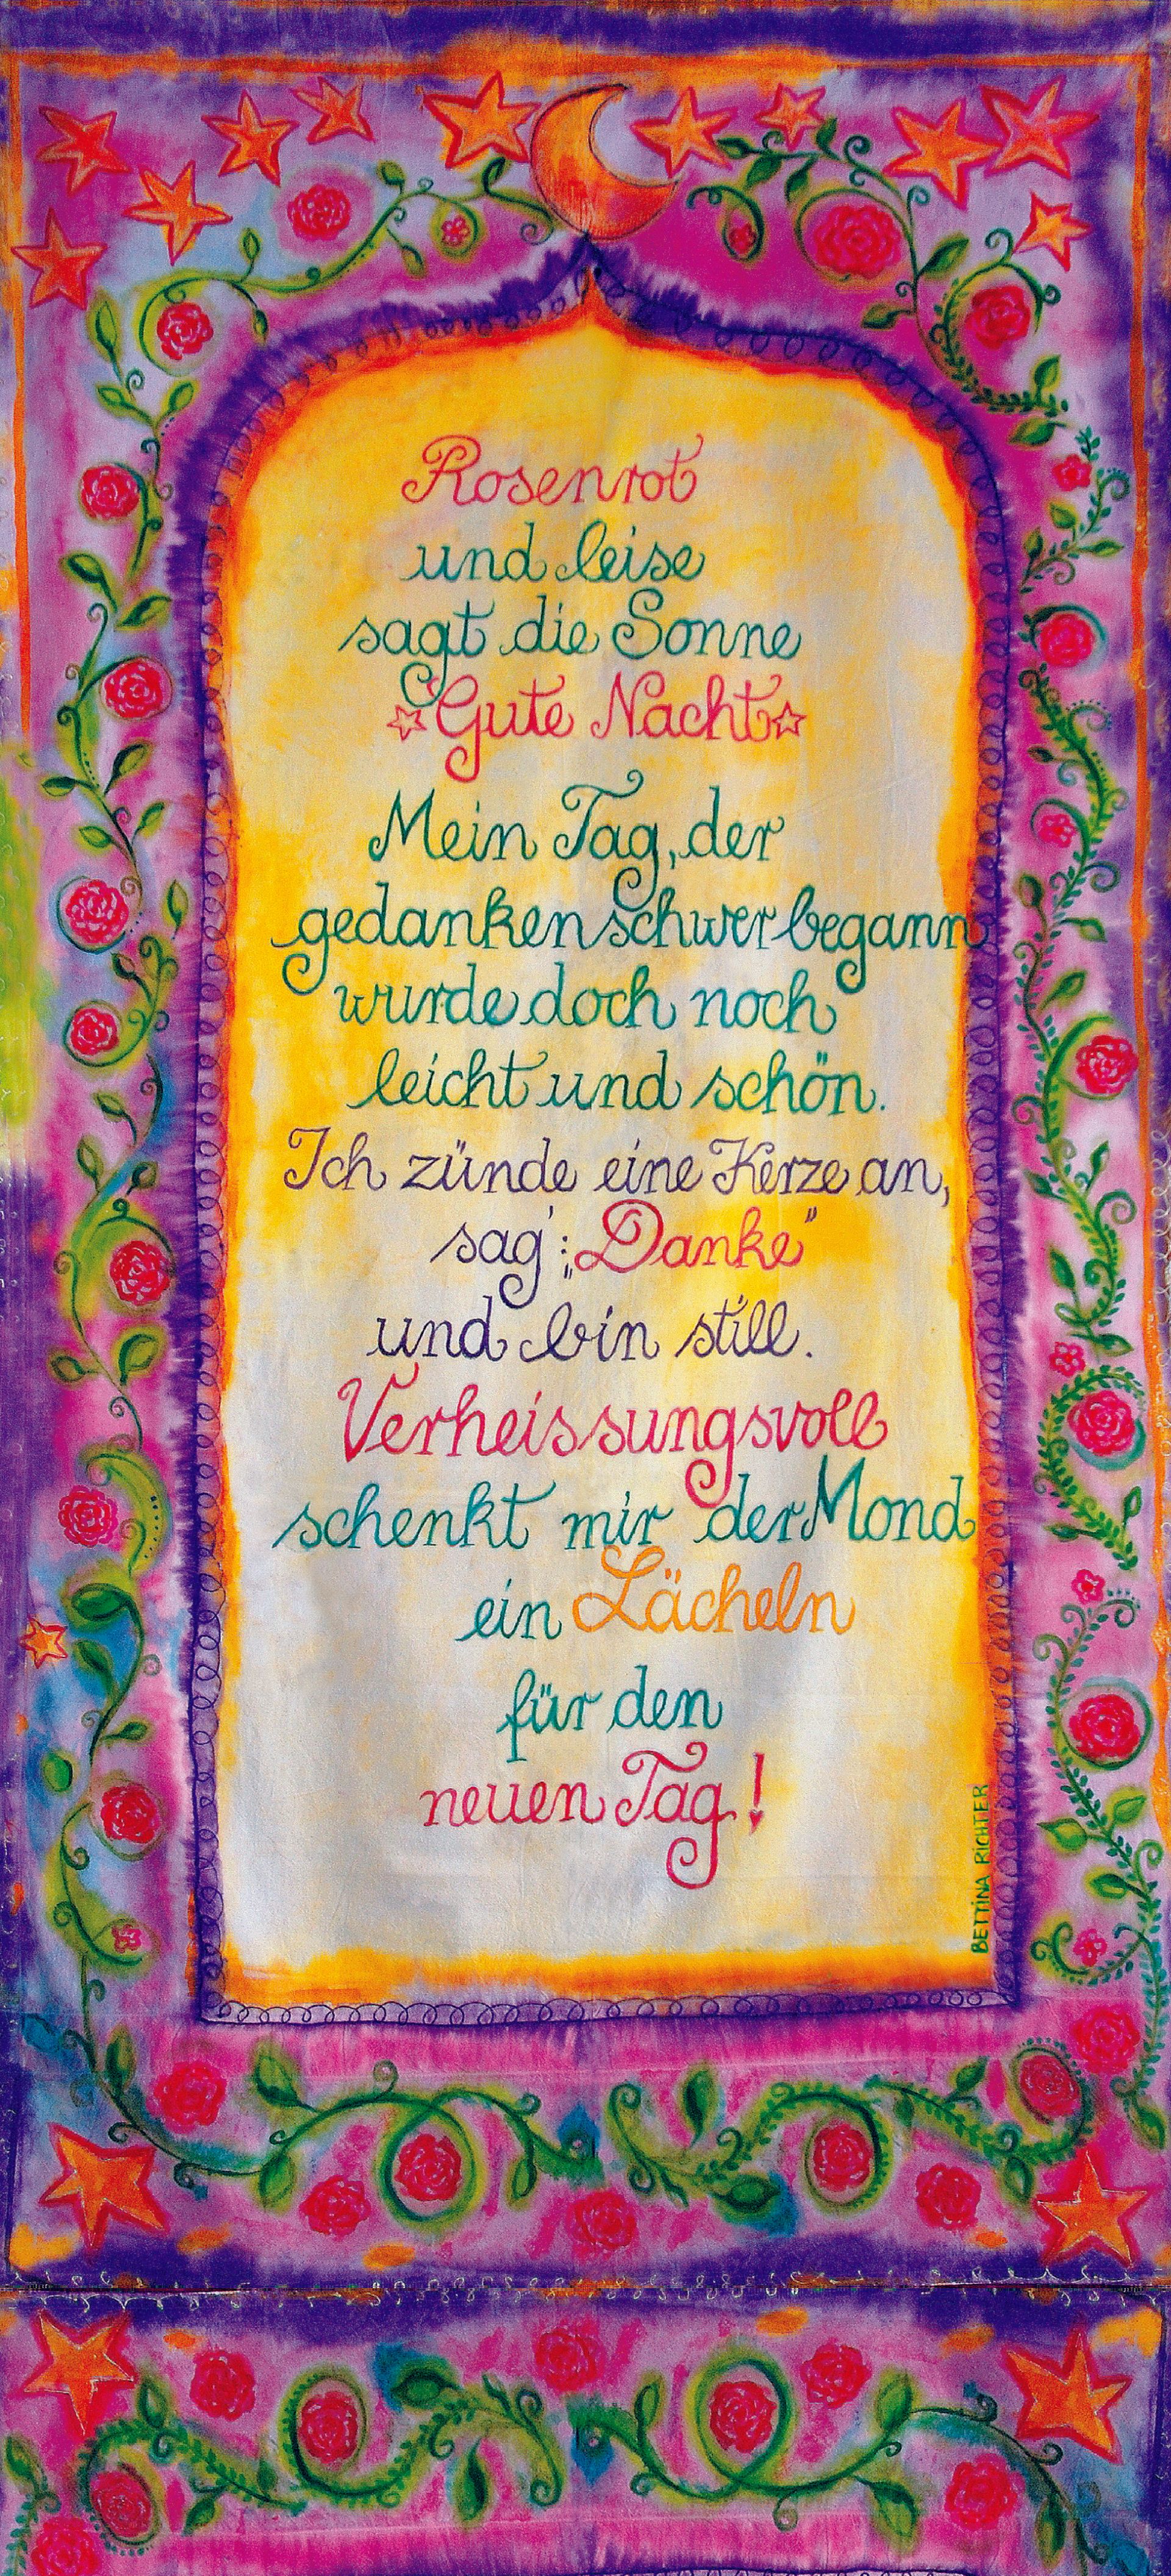 Rosenrot
und leise
sagt die Sonne
☆Gute Nacht☆
Mein Tag, der
gedankenschwer begann
wurde doch noch
leicht und schön.
Ich zünde eine Kerze an,
sag': „Danke"
und bin still.
Verheissungsvoll
schenkt mir der Mond
ein Lächeln
für den
neuen Tag!
BETTINA RICHTER